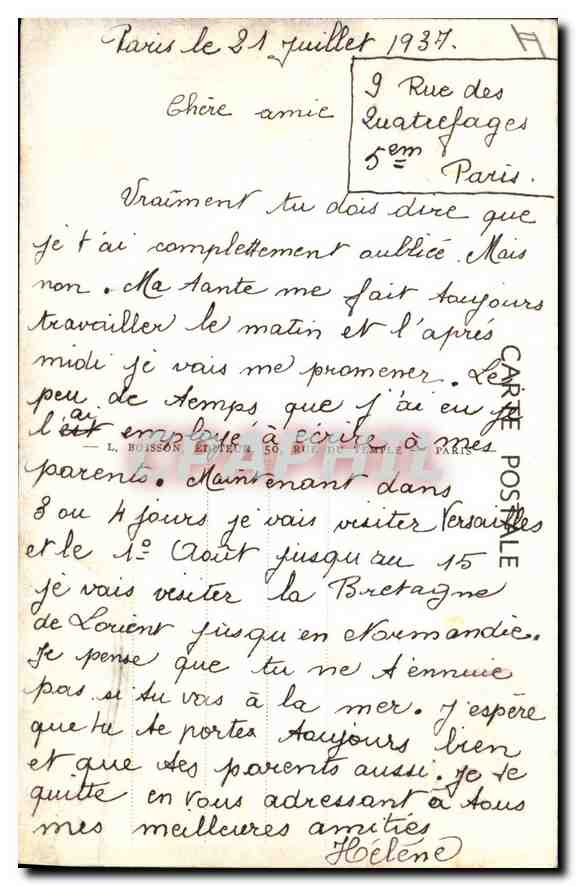 Paris le 21 juillet 1937.
9 Rue des
Quatrefages
5em Paris.
Chère amie
Vraiment tu dois dire que
je t'ai complettement oubliée. Mais
non. Ma tante me fait toujours
travailler le matin et l'après
midi je vais me promener. Le
peu de temps que j'ai eu je
l'ai employé à écrire à mes
— L. BOISSON, ÉDITEUR, 50, RUE DU TEMPLE — PARIS —
parents. Maintenant dans
3 ou 4 jours je vais visiter Versailles
et le 1º Août jusqu'au 15
je vais visiter la Bretagne
de Lorient jusqu'en Normandie.
Je pense que tu ne t'ennuie
pas si tu vas à la mer. J'espère
que tu te portes toujours bien
et que tes parents aussi. Je te
quitte en vous adressant à tous
mes meilleures amitiés
Hélène
CARTE POSTALE
DELCAMPHIL